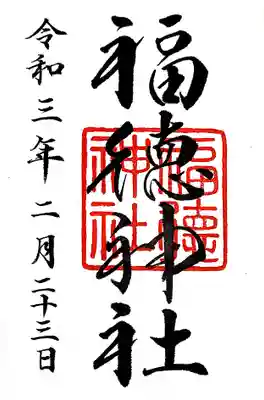 福徳神社
福德
神社
令和三年二月二十三日